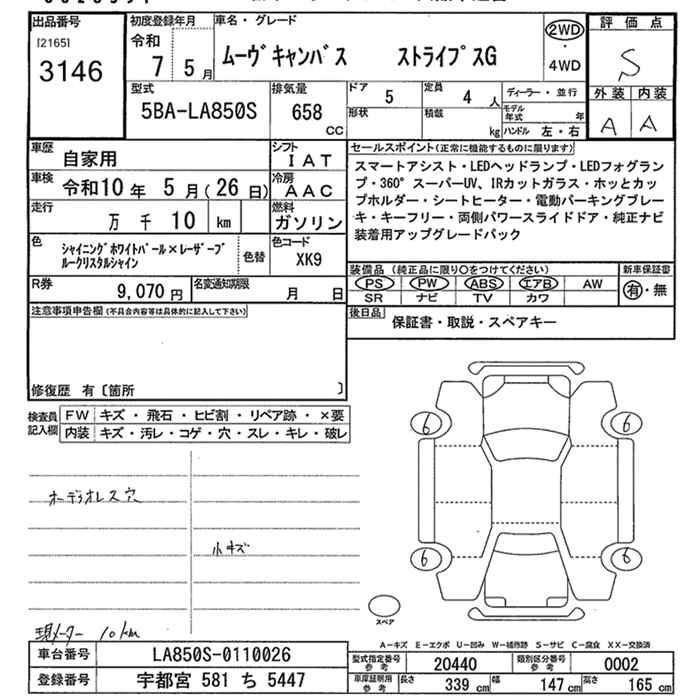 出品番号
[2165]
3146
初度登録年月
令和
7 5月
車名・グレード
ムーヴキャンバス ストライプスG
2WD
・
4WD
評価点
S
外装 内装
A A
型式
5BA-LA850S
排気量
658
CC
ドア
5
定員
4人
形状
積載
kg
ディーラー・並行
モデル年式 年
ハンドル 左・右
車歴
自家用
シフト
IAT
車検
令和10年 5月(26日)
冷房
AAC
走行
万 千 10 km
燃料
ガソリン
色
シャイニングホワイトパール×レーザーブ
ルークリスタルシャイン
色替
色コード
XK9
R券
9,070円
名変通知期限
月 日
セールスポイント(正常に機能するものに限ります)
スマートアシスト・LEDヘッドランプ・LEDフォグラン
プ・360°スーパーUV、IRカットガラス・ホッとカッ
プホルダー・シートヒーター・電動パーキングブレー
キ・キーフリー・両側パワースライドドア・純正ナビ
装着用アップグレードパック
装備品(純正品に限り○をつけてください)
PS PW ABS エアB AW
SR ナビ TV カワ
新車保証書
有・無
後日品
保証書・取説・スペアキー
注意事項申告欄(不具合内容等は具体的に記入して下さい)
修復歴 有〔箇所 〕
検査員
記入欄
FW キズ・飛石・ヒビ割・リペア跡・×要
内装 キズ・汚レ・コゲ・穴・スレ・キレ・破レ
オーディオレス穴
小キズ
現メーター 10km
6
6
6
6
スペア
A-キズ E-エクボ U-凹み W-補修跡 S-サビ C-腐食 XX-交換済
車台番号
LA850S-0110026
登録番号
宇都宮 581 ち 5447
型式指定番号
参考
20440
類別区分番号
参考
0002
車庫証明用
参考
長さ 339cm 幅 147cm 高さ 165cm